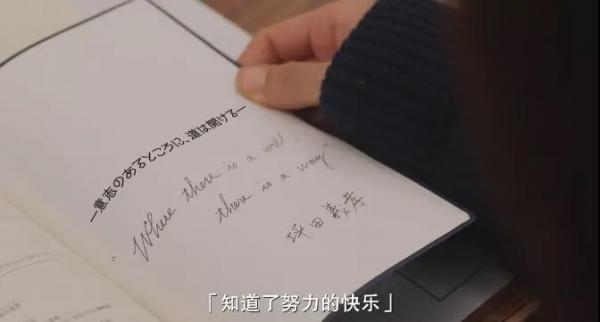 —意志のあるところに、道は開ける—
"Where there is a will,
there is a way"
坪田 義彦
「知道了努力的快乐」